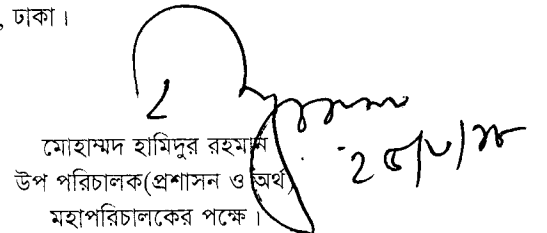 , ঢাকা।
মোহাম্মদ হামিদুর রহমান
উপ পরিচালক(প্রশাসন ও অর্থ)
মহাপরিচালকের পক্ষে।